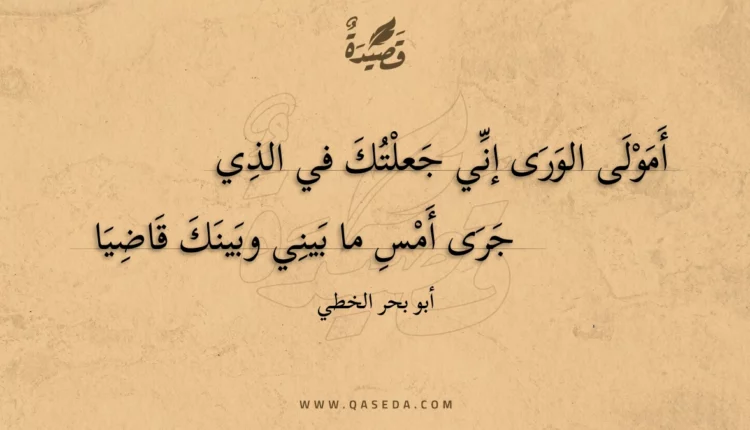 قَصِيدَةٌ
أَمَوْلَى الوَرَى إنِّي جَعلْتُكَ في الذِي
جَرَى أَمْسِ ما بَينِي وبَينَكَ قَاضِيَا
أبو بحر الخطي
WWW.QASEDA.COM